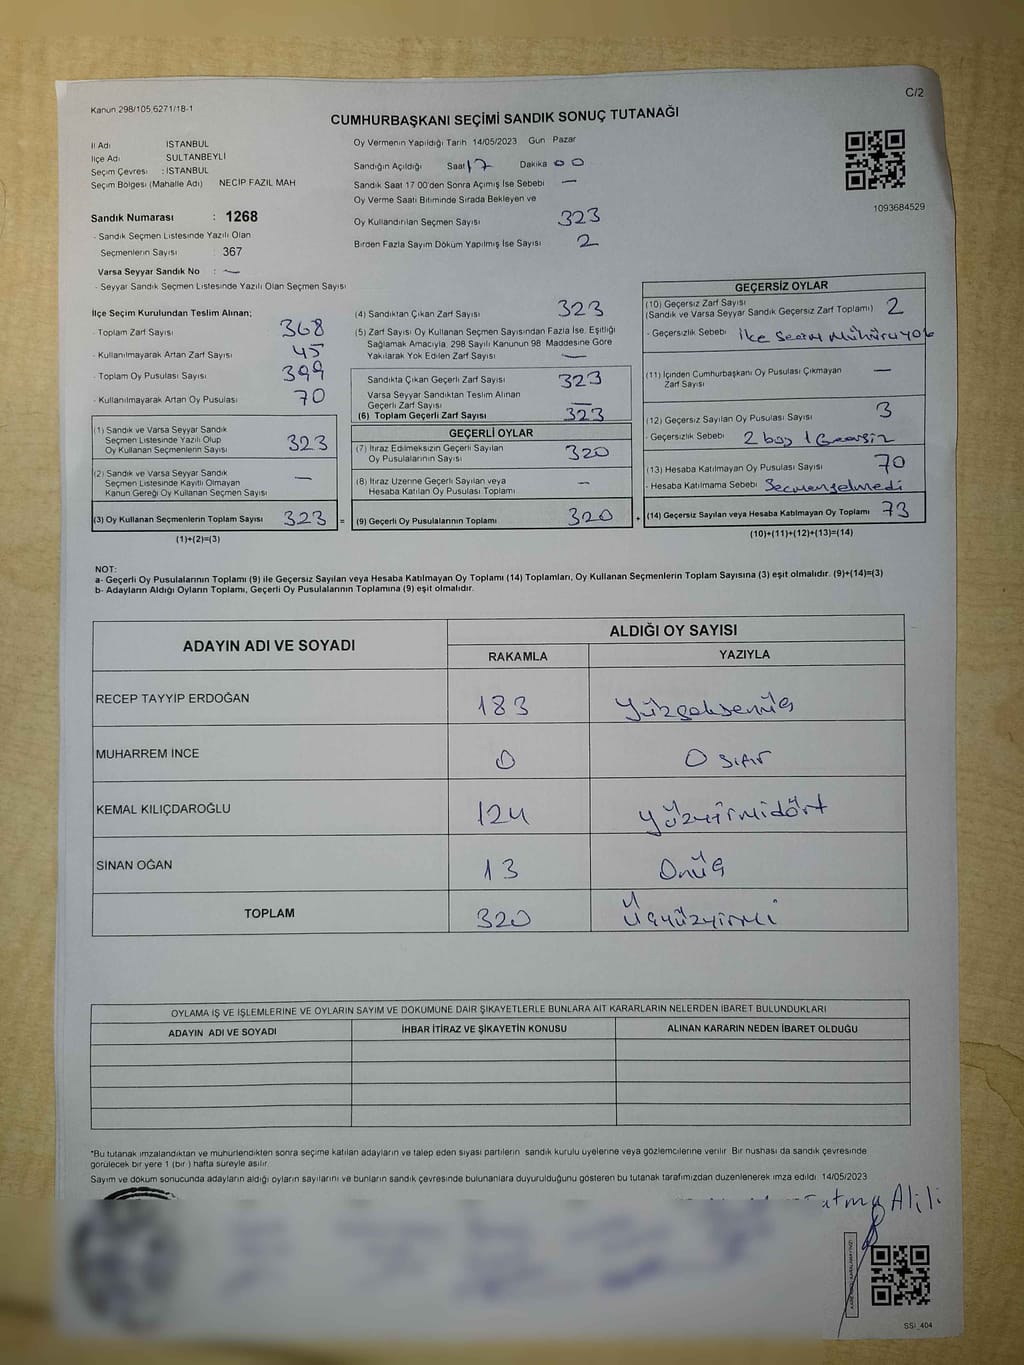 Kanun 298/105,6271/18-1
C/2
CUMHURBAŞKANI SEÇİMİ SANDIK SONUÇ TUTANAĞI
İl Adı İSTANBUL
İlçe Adı SULTANBEYLİ
Seçim Çevresi : İSTANBUL
Seçim Bölgesi (Mahalle Adı) NECİP FAZIL MAH
Sandık Numarası : 1268
- Sandık Seçmen Listesinde Yazılı Olan
Seçmenlerin Sayısı : 367
Varsa Seyyar Sandık No : —
- Seyyar Sandık Seçmen Listesinde Yazılı Olan Seçmen Sayısı
Oy Vermenin Yapıldığı Tarih 14/05/2023 Gün Pazar
Sandığın Açıldığı Saat 17 Dakika 00
Sandık Saat 17 00'den Sonra Açılmış İse Sebebi —
Oy Verme Saati Bitiminde Sırada Bekleyen ve
Oy Kullandırılan Seçmen Sayısı 323
Birden Fazla Sayım Döküm Yapılmış İse Sayısı 2
1093684529
İlçe Seçim Kurulundan Teslim Alınan;
- Toplam Zarf Sayısı 368
- Kullanılmayarak Artan Zarf Sayısı 45
- Toplam Oy Pusulası Sayısı 399
- Kullanılmayarak Artan Oy Pusulası 70
(1) Sandık ve Varsa Seyyar Sandık
Seçmen Listesinde Yazılı Olup
Oy Kullanan Seçmenlerin Sayısı 323
(2) Sandık ve Varsa Seyyar Sandık
Seçmen Listesinde Kayıtlı Olmayan
Kanun Gereği Oy Kullanan Seçmen Sayısı —
(3) Oy Kullanan Seçmenlerin Toplam Sayısı 323 =
(1)+(2)=(3)
(4) Sandıktan Çıkan Zarf Sayısı 323
(5) Zarf Sayısı Oy Kullanan Seçmen Sayısından Fazla İse, Eşitliği
Sağlamak Amacıyla, 298 Sayılı Kanunun 98 Maddesine Göre
Yakılarak Yok Edilen Zarf Sayısı —
Sandıkta Çıkan Geçerli Zarf Sayısı 323
Varsa Seyyar Sandıktan Teslim Alınan
Geçerli Zarf Sayısı —
(6) Toplam Geçerli Zarf Sayısı 323
GEÇERLİ OYLAR
(7) İtiraz Edilmeksizin Geçerli Sayılan
Oy Pusulalarının Sayısı 320
(8) İtiraz Üzerine Geçerli Sayılan veya
Hesaba Katılan Oy Pusulası Toplamı —
(9) Geçerli Oy Pusulalarının Toplamı 320 +
GEÇERSİZ OYLAR
(10) Geçersiz Zarf Sayısı
(Sandık ve Varsa Seyyar Sandık Geçersiz Zarf Toplamı) 2
- Geçersizlik Sebebi İlçe Seçim Mühürü yok
(11) İçinden Cumhurbaşkanı Oy Pusulası Çıkmayan —
Zarf Sayısı
(12) Geçersiz Sayılan Oy Pusulası Sayısı 3
- Geçersizlik Sebebi 2 boş 1 Geçersiz
(13) Hesaba Katılmayan Oy Pusulası Sayısı 70
- Hesaba Katılmama Sebebi Seçmen gelmedi
(14) Geçersiz Sayılan veya Hesaba Katılmayan Oy Toplamı 73
(10)+(11)+(12)+(13)=(14)
NOT:
a- Geçerli Oy Pusulalarının Toplamı (9) ile Geçersiz Sayılan veya Hesaba Katılmayan Oy Toplamı (14) Toplamları, Oy Kullanan Seçmenlerin Toplam Sayısına (3) eşit olmalıdır. (9)+(14)=(3)
b- Adayların Aldığı Oyların Toplamı, Geçerli Oy Pusulalarının Toplamına (9) eşit olmalıdır.
ADAYIN ADI VE SOYADI
ALDIĞI OY SAYISI
RAKAMLA YAZIYLA
RECEP TAYYİP ERDOĞAN 183 Yüzseksenüç
MUHARREM İNCE 0 0 sıfır
KEMAL KILIÇDAROĞLU 124 Yüzyirmidört
SİNAN OĞAN 13 Onüç
TOPLAM 320 Üçyüzyirmi
OYLAMA İŞ VE İŞLEMLERİNE VE OYLARIN SAYIM VE DÖKÜMÜNE DAİR ŞİKAYETLERLE BUNLARA AİT KARARLARIN NELERDEN İBARET BULUNDUKLARI
ADAYIN ADI VE SOYADI İHBAR İTİRAZ VE ŞİKAYETİN KONUSU ALINAN KARARIN NEDEN İBARET OLDUĞU
*Bu tutanak imzalandıktan ve mühürlendikten sonra seçime katılan adayların ve talep eden siyasi partilerin sandık kurulu üyelerine veya gözlemcilerine verilir Bir nüshası da sandık çevresinde
görülecek bir yere 1 (bir ) hafta süreyle asılır
Sayım ve döküm sonucunda adayların aldığı oyların sayılarını ve bunların sandık çevresinde bulunanlara duyurulduğunu gösteren bu tutanak tarafımızdan düzenlenerek imza edildi 14/05/2023
Alili
SSİ_404